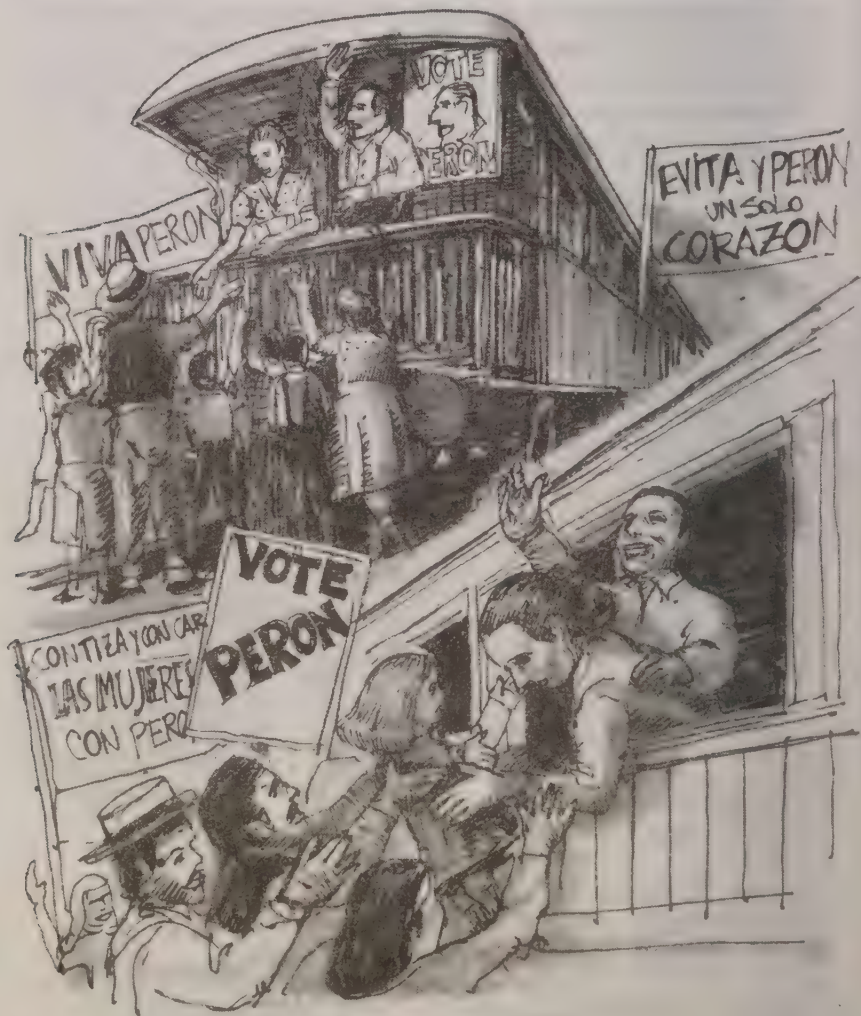 VOTE
PERON
VIVA PERON
EVITA Y PERON
UN SOLO
CORAZON
VOTE
PERON
CON TIZA Y CON CAR
LAS MUJERES
CON PERO